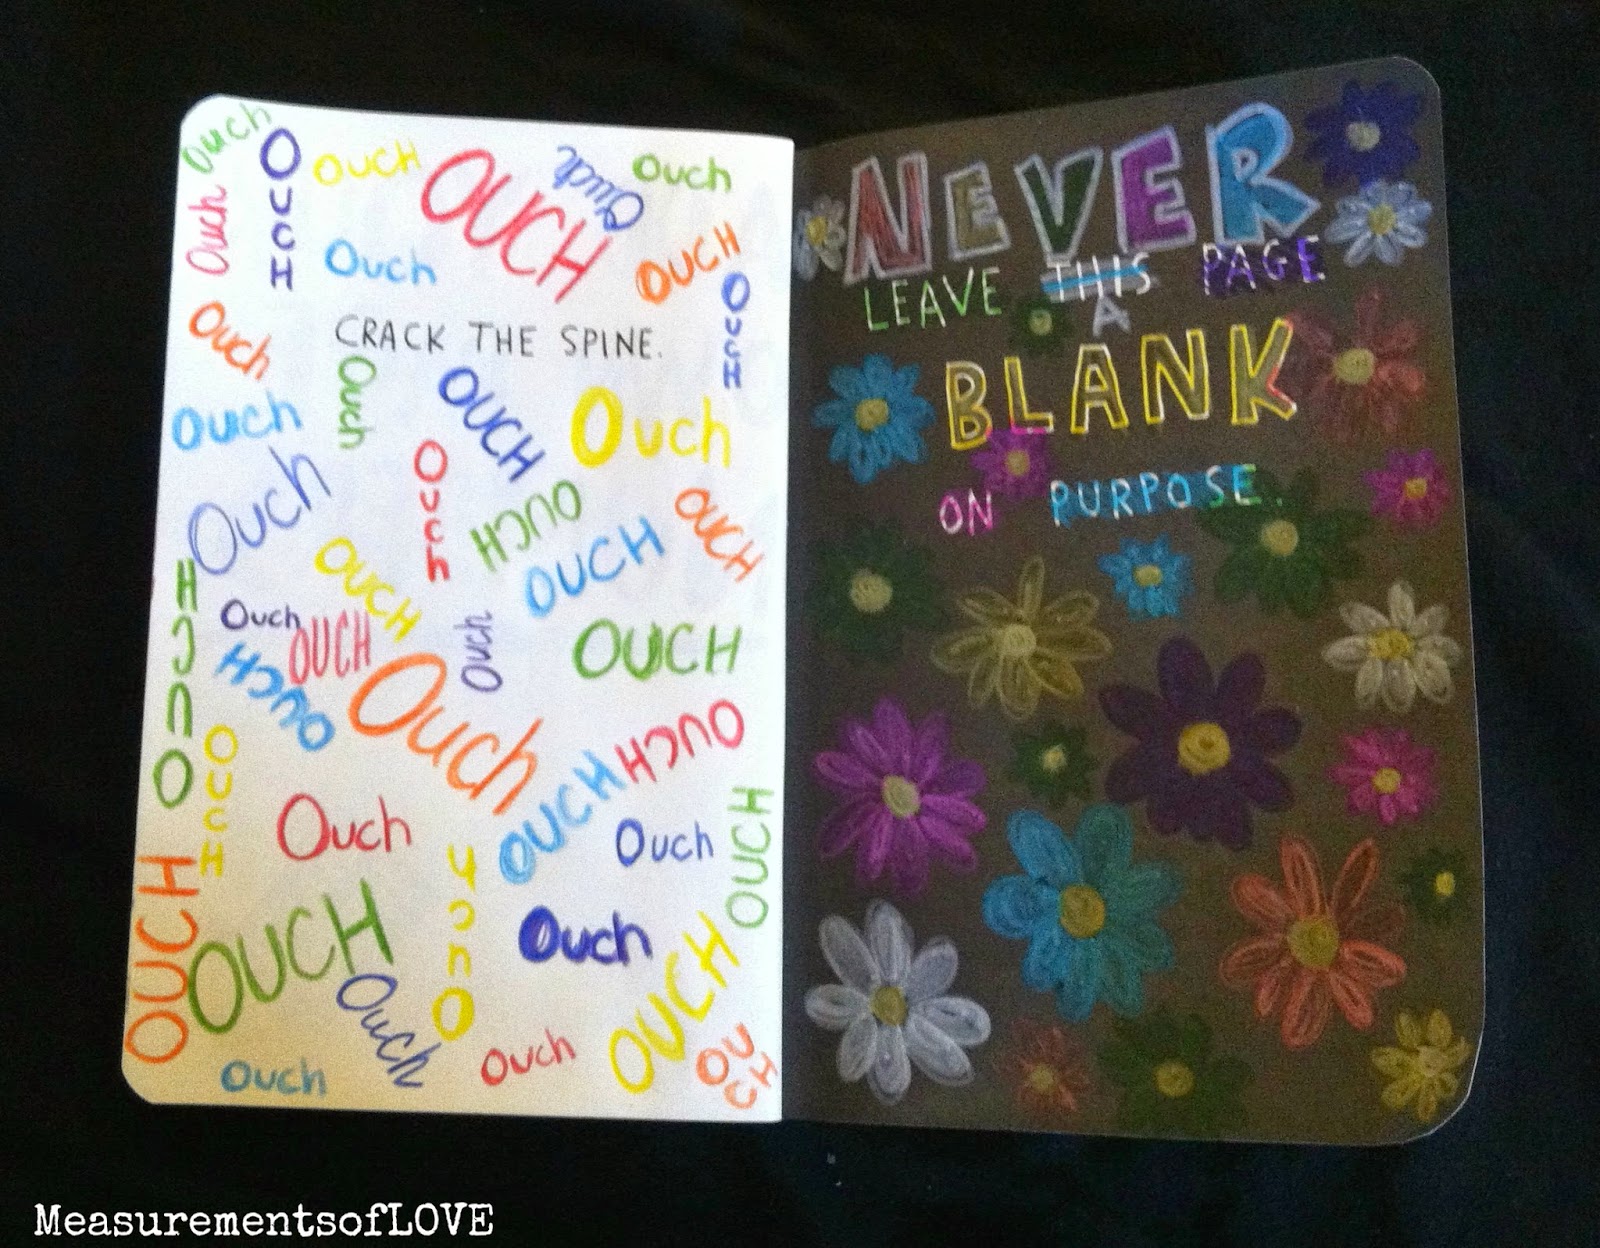 Ouch
OUCH
OUCH
OUCH
Ouch
Ouch
Ouch
Ouch
OUCH
OUCH
Ouch
CRACK THE SPINE.
Ouch
OUCH
Ouch
Ouch
Ouch
Ouch
OUCH
OUCH
OUCH
OUCH
OUCH
Ouch
OUCH
Ouch
OUCH
OUCH
Ouch
OUCH
OUCH
OUCH
Ouch
Ouch
OUCH
Ouch
OUCH
OUCH
Ouch
OUCH
Ouch
Ouch
OUCH
Ouch
NEVER
LEAVE THIS PAGE
A
BLANK
ON PURPOSE.
MeasurementsofLOVE